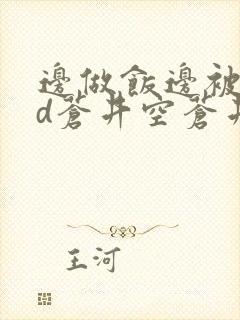 邊做飯邊被
d蒼井空蒼井
王河